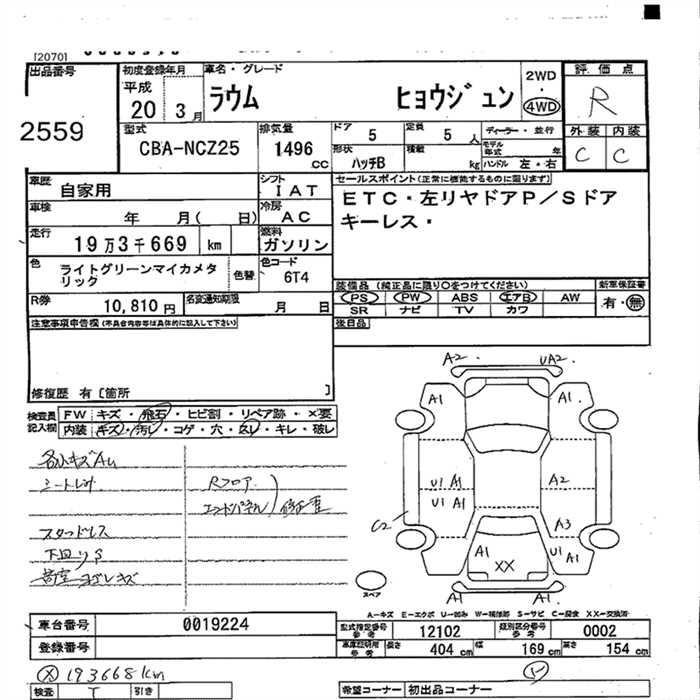 [2070]
出品番号
2559
初度登録年月
平成
20 3月
車名・グレード
ラウム ヒョウジュン
2WD
・
4WD
評価点
R
外装 内装
C C
型式
CBA-NCZ25
排気量
1496
cc
ドア 5
定員 5 人
形状 ハッチB
積載 kg
ディーラー・並行
モデル年式 年
ハンドル 左・右
車歴
自家用
シフト
IAT
車検
年 月( 日)
冷房
AC
走行
19万3千669 km
燃料
ガソリン
色
ライトグリーンマイカメタリック
色替
色コード
6T4
R券
10,810円
名変通知期限
月 日
セールスポイント(正常に機能するものに限ります)
ETC・左リヤドアP/Sドア
キーレス・
装備品 (純正品に限り○をつけてください)
PS PW ABS エアB AW
SR ナビ TV カワ
新車保証書
有・無
後日品
注意事項申告欄(不具合内容等は具体的に記入して下さい)
修復歴 有[箇所 ]
検査員
記入欄
FW キズ・飛石・ヒビ割・リペア跡・×要
内装 キズ・汚レ・コゲ・穴・スレ・キレ・破レ
スタッドレス
Rフロア
エンドパネル
A2 UA2
A1 A1
U1 A1 A2
U1 A1
C2 A3
A1 U1 A1
XX
A1 A1
スペア
A-キズ E-エクボ U-凹み W-補修跡 S-サビ C-腐食 XX-交換済
車台番号 0019224
登録番号
型式指定番号
参考
12102
類別区分番号
参考
0002
車庫証明用
参考
長さ 404 cm 幅 169 cm 高さ 154 cm
193668km
検査 T 引き
希望コーナー 初出品コーナー